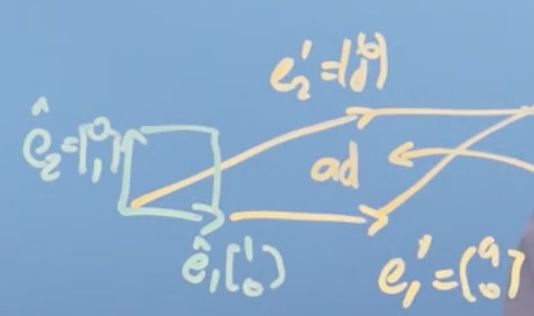 e₂' = (b d)
ê₂ = (0 1)
ad
ê₁ (1 0)
e₁' = (a 0)